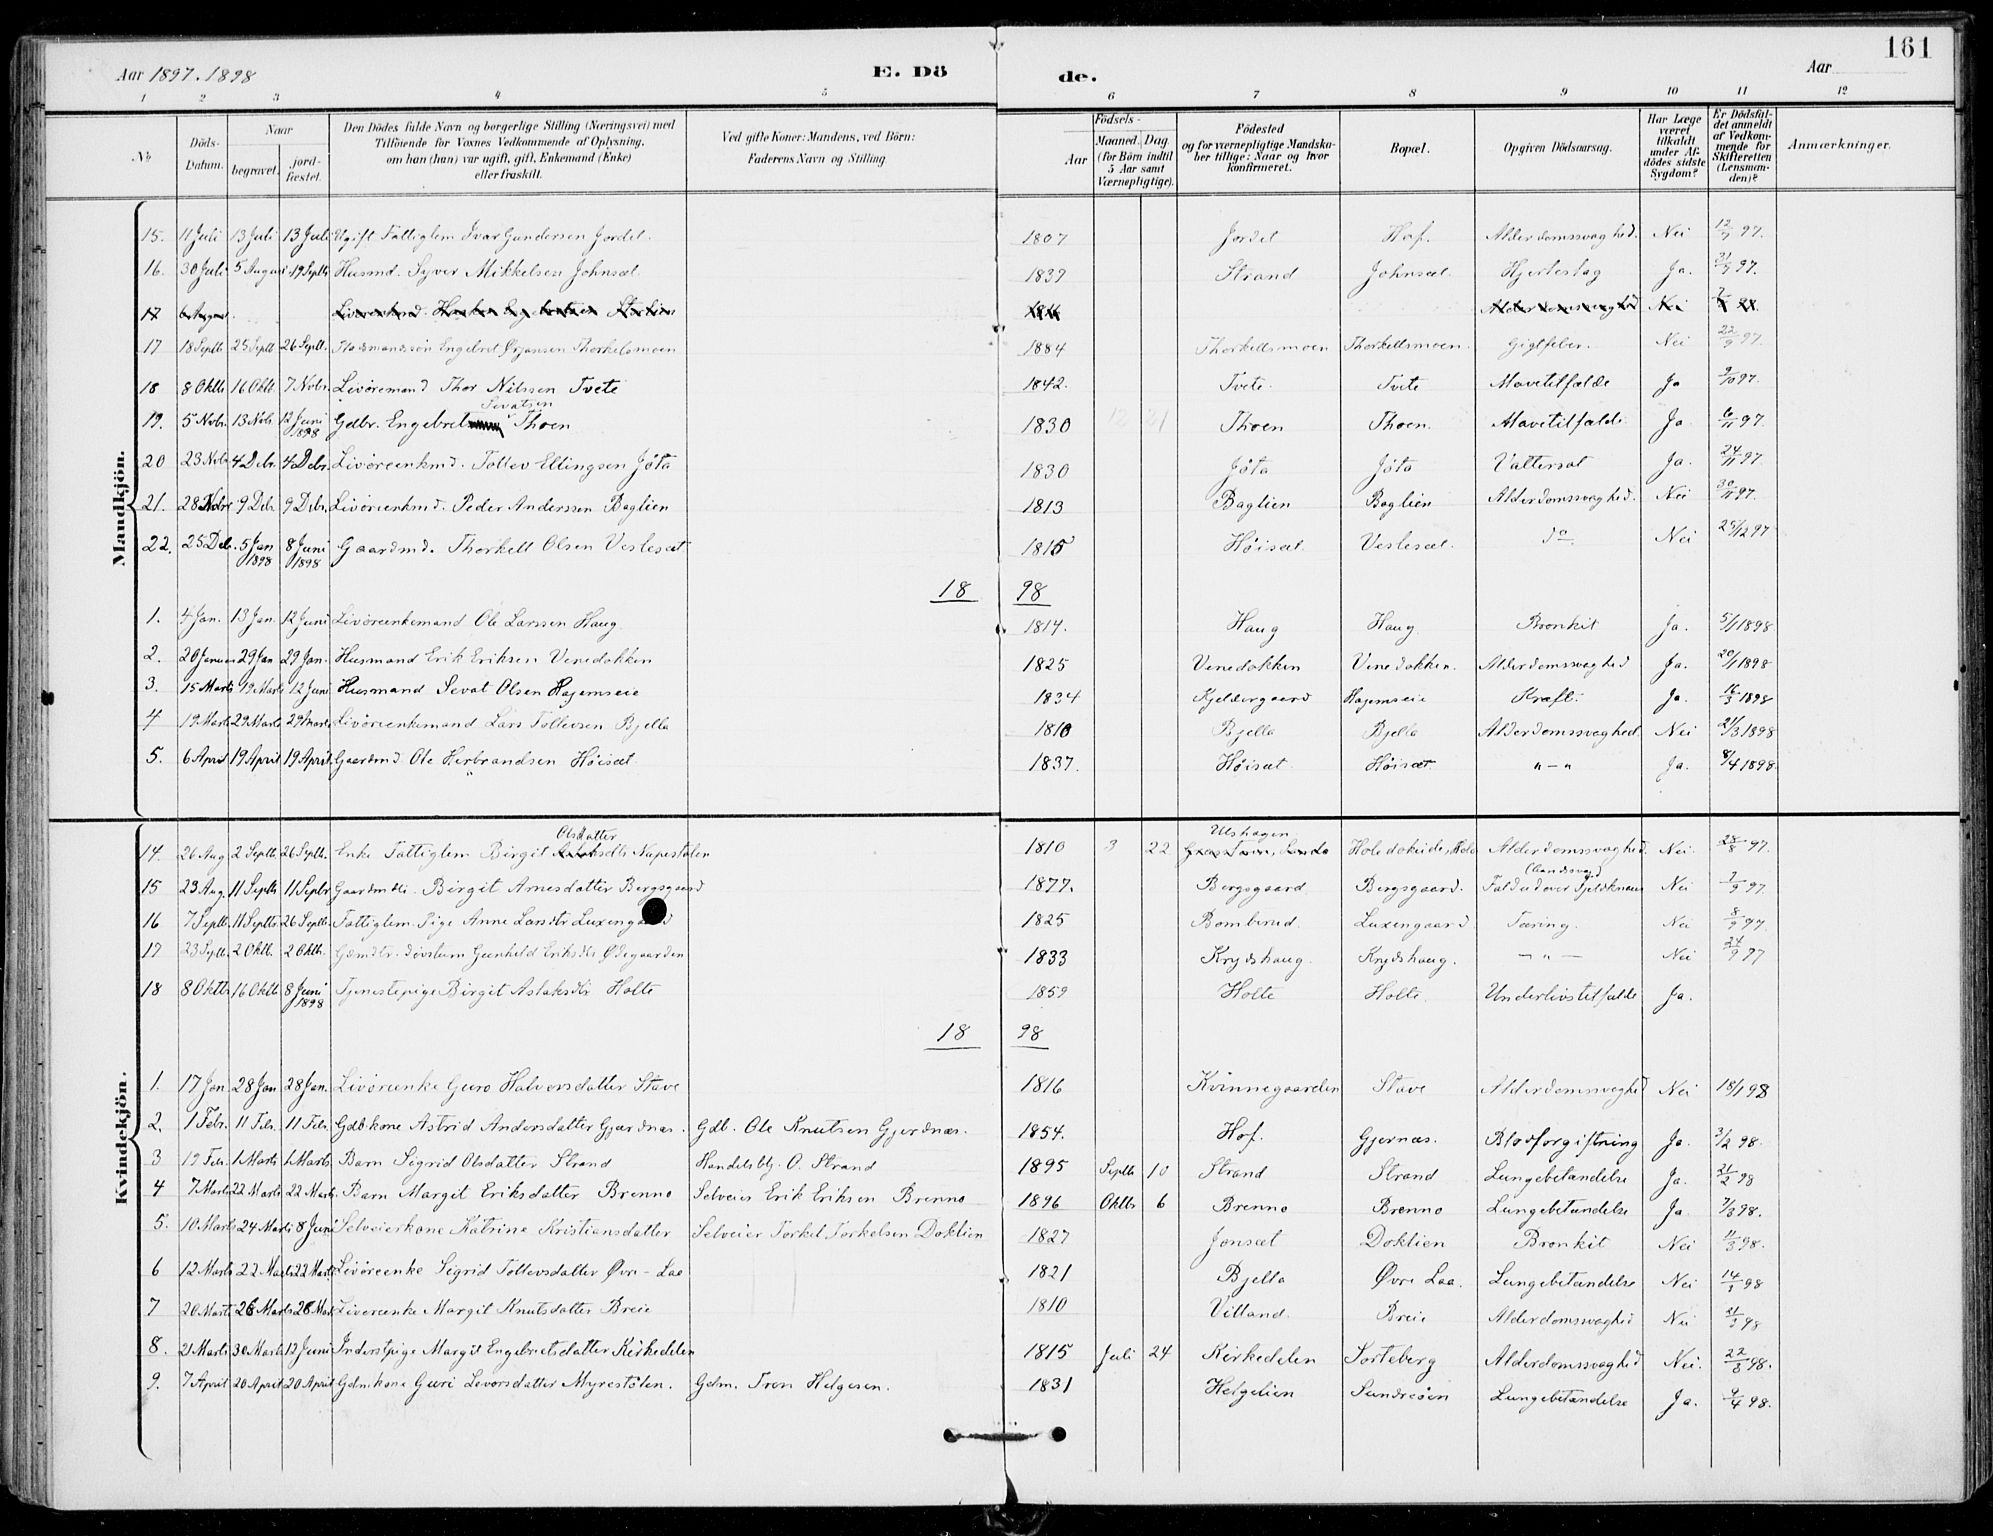 Aar 1897. 1898
E. Dö
de.
Aar
161
1 2 3 4 5 6 7 8 9 10 11 12
No
Döds-Datum.
Naar
begravet.
jord-fæstet.
Den Dödes fulde Navn og borgerlige Stilling (Næringsvei) med
Tilföiende for Voxnes Vedkommende af Oplysning,
om han (hun) var ugift, gift, Enkemand (Enke)
eller fraskilt.
Ved gifte Koner: Mandens, ved Börn:
Faderens Navn og Stilling.
Födsels-
Aar
Maaned. Dag.
(for Börn indtil
5 Aar samt
Værnepligtige).
Födested
og for værnepligtige Mandska-
ber tillige: Naar og hvor
konfirmeret.
Bopæl.
Opgiven Dödsaarsag.
Har Læge
været
tilkaldt
under Af-
dödes sidste
Sygdom?
Er Dödsfal-
det anmeldt
af Vedkom-
mende for
Skifteretten
(Lensman-
den)?
Anmærkninger.
Mandkjön.
15. 11 Juli 13 Juli 13 Juli Ugift Fattiglem Ivar Gundersen Jordet. 1807 Jordet Hof. Alderdomssvaghed. Nei 12/7 97.
16. 30 Juli 5 August 19 Septb Husmd. Syver Mikkelsen Johnsæt. 1839 Strand Johnsæt. Hjerteslag Ja. 97.
17 6 August Alderdomssvaghed Nei
17 18 Septb 25 Septb 26 Septb. Engebret Ørjansen Thorkelsmoen 1884 Thorkellsmoen Thorkellsmoen. Gigtfeber. Nei 22/9 97.
18 8 Oktb. 16 Oktb. 7 Novbr. Livöremand Thor Nilssen Tveté 1842. Tvete. Tvete Mavetilfælde Ja 9/10 97.
19. 5 Novbr. 13 Novb. 12 Juni 1898 Gdbr. Engebret Sevatsen Thoen 1830 12 21 Thoen Thoen. Mavetilfælde. Ja. 6/11 97.
20 23 Novb 4 Debr. 4 Debr. Livöreenkmd. Tollev Ellingsen Jöta 1830 Jöta Jöta Vattersot Ja. 24/11 97.
21. 28 Nobr 9 Debr. 9 Debr. Livöreenkmd. Peder Anderssen Baglien 1813 Baglien Baglien Alderdomssvaghed. Nei 30/11 97.
22. 25 Deb. 5 Jan 1898 8 Juni 1898 Gaardmd. Thorkell Olsen Veslesæt 1815 Höisæt. Veslesæt. do. Nei 25/12 97
18 98
1. 4 Jan. 13 Jan. 12 Juni Livöreenkemand Ole Larssen Haug. 1814. Haug Haug. Bronkit Ja. 5/1 1898
2. 20 Januar 29 Jan 29 Jan. Husmand Erik Eriksen Venedokken 1825 Venedokken Venedokken. Alderdomssvaghed Ja. 20/1 1898
3. 15 Marts 19 Marts 12 Juni Husmand Sevat Olsen Hagemseie 1834 Kjeldergaard Hagemseie Kræft. Ja. 16/3 1898
4 19 Marts 29 Marts 29 Marts Livöreenkemand Lars Tollevsen Bjella 1810 Bjella Bjella Alderdomssvaghed. Nei 21/3 1898
5. 6 April 19 April 19 April. Gaardmd Ole Herbrandsen Höisæt 1837. Höisæt. Höisæt. "-" Ja. 8/4 1898.
Kvindekjön.
14. 26 Aug 2 Septb. 26 Septb. Enke Fattiglem Birgit Olsdatter Nupestölen 1810 3 22 Ulshagen Alderdomssvaghed. Nei. 28/8 97.
15 23 Aug. 11 Septb 11 Septbr Gaardmdtr. Birgit Arnesdatter Bergsgaard 1877. Bergsgaard Bergsgaard. (Aandssvag) Nei 97
16 7 Septb. 11 Septbr 26 Septb. Fattiglem. Pige Anne Larsdtr Luxengaard 1825 Bomberud. Luxengaard. Tæring. Nei 8/9 97.
17 23 Septb. 2 Oktb. 2 Oktb. Gdmdtr. dövstum Gunhild Eriksdtr Ödegaarden 1833 Krydshaug. Krydshaug. - " - Nei 24/9 97
18 8 Oktb 16 Oktb 8 Juni 1898 Tjenestepige Birgit Aslaksdtr Holte 1859 Holte Holte. Underlivstilfælde Ja.
18 98
1. 17 Jan 28 Jan 28 Jan. Livöreenke Guro Halvorsdatter Stave 1816 Kvinnegaarden Stave Alderdomssvaghed Nei 18/1 98
2. 1 Febr. 11 Febr. 11 Febr. Gdbkone Astrid Andersdatter Gjærdnæs. Gdb. Ole Knutsen Gjerdnæs. 1854. Hof. Gjernæs. Blodforgiftning Ja. 3/2 98.
3 19 Febr. 1 Marts 1 Marts. Barn Sigrid Olsdatter Strand Handelsbtj. O. Strand 1895 Septb 10 Strand Strand Lungebetændelse Ja. 21/2 98
4 7 Marts 22 Marts 22 Marts. Barn Margit Eriksdatter Brenno Selveier Erik Eriksen Brenno 1896 Oktb 6 Brenno Brenno Lungebetændelse Ja. 7/3 98.
5. 10 Marts 24 Marts 8 Juni Selveierkone Katrine Kristiansdatter Selveier Torkel Torkelsen Doklien 1827 Jonsæt Doklien Bronkit Nei 11/3 98.
6 12 Marts 22 Marts 22 Marts Livöreenke Sigrid Tollevsdatter Övre-Laa 1821 Bjella Övre Laa. Lungebetændelse Nei 14/3 98
7 20 Marts 26 Marts 26 Mar Livöreenke Margit Knutsdatter Breie 1810 Villand. Breie Alderdomssvaghed Nei 21/3 98
8. 21 Marts 30 Marts 12 Juni Inderstpige Margit Engebretsdatter Kirkedelen 1815 Juli 24 Kirkedelen Sorteberg Alderdomssvaghed Nei. 22/3 98.
9. 7 April 20 April 20 April Gdmkone Guri Levorsdatter Myrestölen. Gdm. Tron Helgesen. 1831 Helgelien Sundreöen Lungebetændelse Ja. 9/4 98.